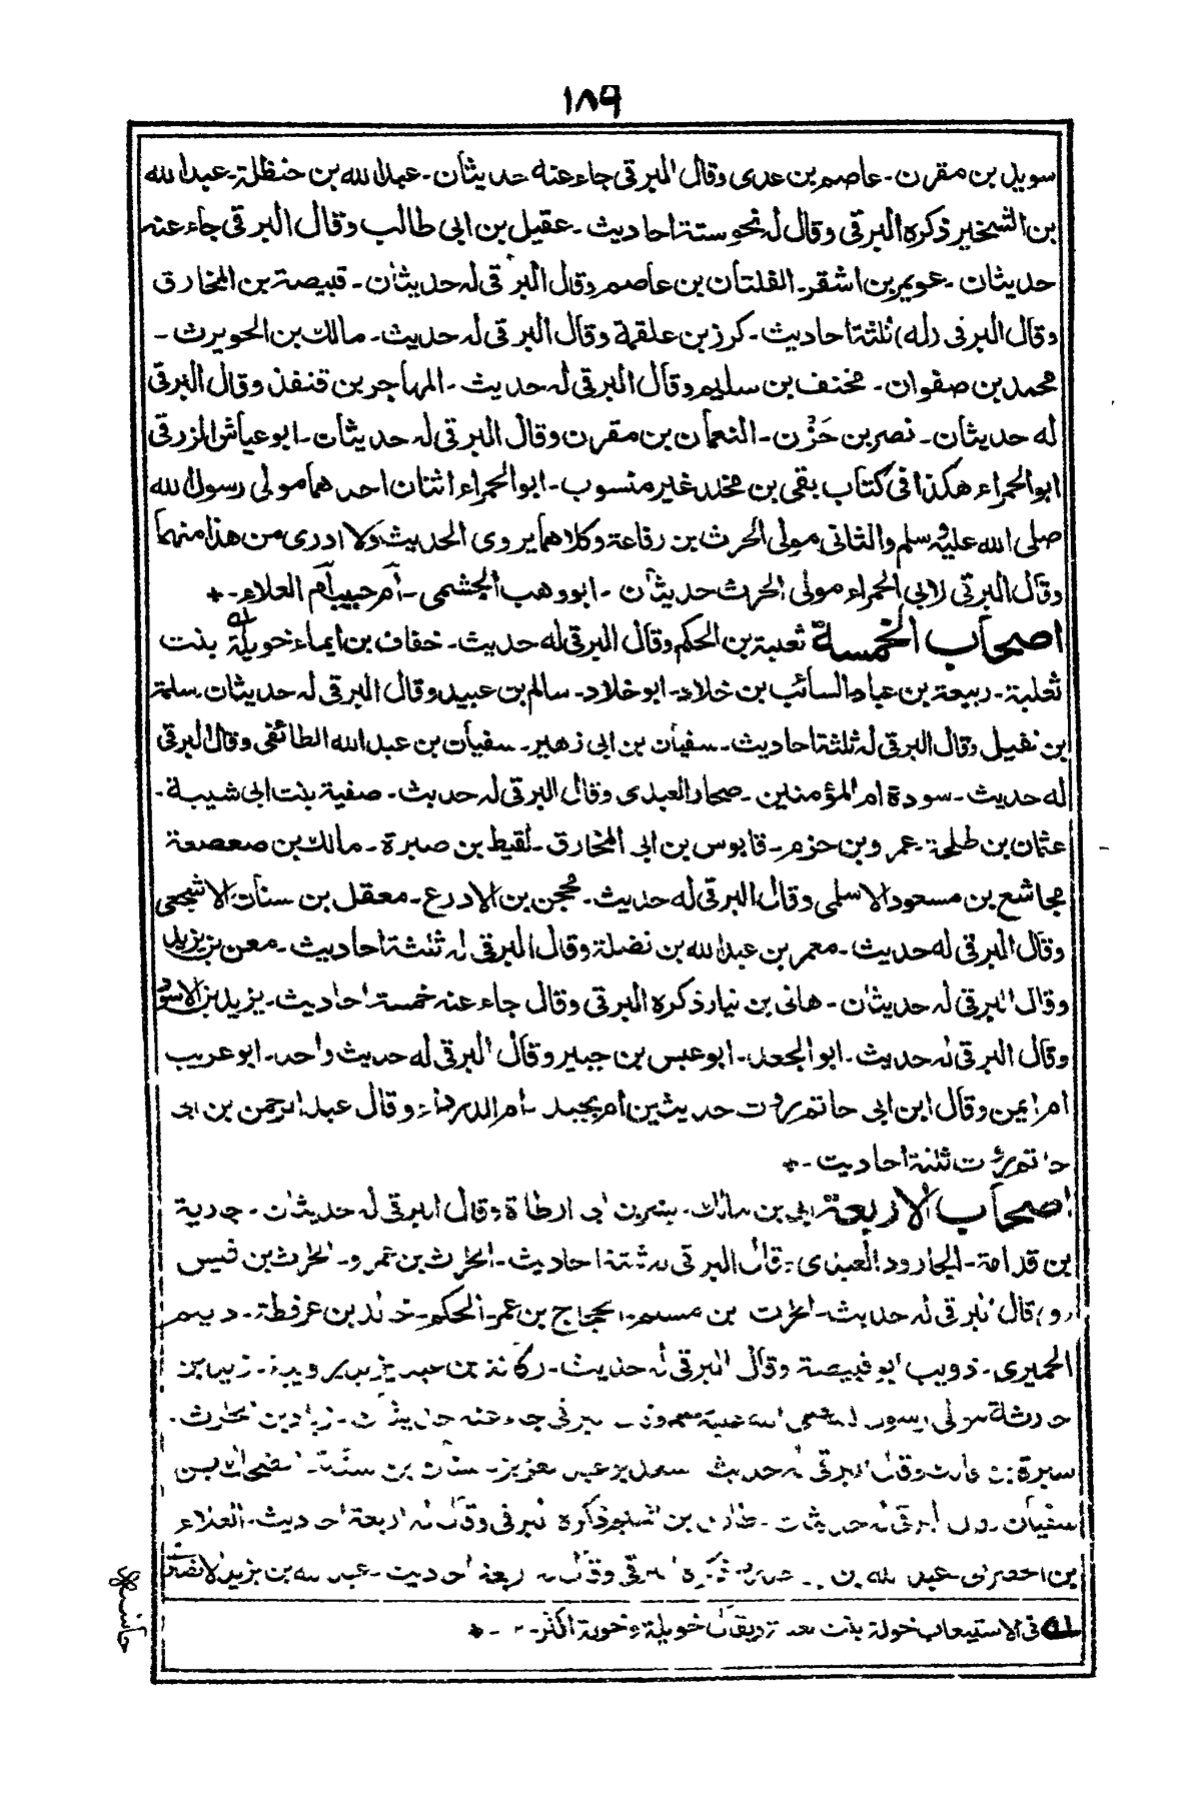 ١٨٩
سويد بن مقرن - عاصم بن عدى وقال البرقى جاء عنه حديثان - عبدالله بن حنظلة - عبدالله
بن الشخير ذكره البرقى وقال له نحو ستة احاديث - عقيل بن ابى طالب وقال البرقى جاء عنه
حديثان - عويمر بن اشقر - الفلتان بن عاصم وقال البرقى له حديثان - قبيصة بن المخارق
وقال البرقى (له) ثلثة احاديث - كرز بن علقمة وقال البرقى له حديث - مالك بن الحويرث -
محمد بن صفوان - مخنف بن سليم وقال البرقى له حديث - المهاجر بن قنفذ وقال البرقى
له حديثان - نصر بن حَزْن - النعمان بن مقرن وقال البرقى له حديثان - ابو عياش الزرقى
ابو الحمراء هكذا فى كتاب بقى بن مخلد غير منسوب - ابو الحمراء اثنان احدهما مولى رسول الله
صلى الله عليه وسلم والثانى مولى الحرث بن رفاعة وكلاهما يروى الحديث ولا ادرى من هذا منهما
وقال البرقى لابى الحمراء مولى الحرث حديثان - ابو وهب الجشمى - أم حبيب أم العلاء - *
اصحاب الخمسة ثعلبة بن الحكم وقال البرقى له حديث - خفاف بن ايماء خويلة له بنت
ثعلبة - ربيعة بن عباد السائب بن خلاد - ابو خلاد - سالم بن عبيد وقال البرقى له حديثان - سلمة
بن نفيل وقال البرقى له ثلثة احاديث - سفيان بن ابى زهير - سفيان بن عبد الله الطائفى وقال البرقى
له حديث - سودة ام المؤمنين - صحار العبدى وقال البرقى له حديث - صفية بنت ابى شيبة -
عثمان بن طلحة - عمرو بن حزم - قابوس بن ابى المخارق - لقيط بن صبرة - مالك بن صعصعة
مجاشع بن مسعود الاسلمى وقال البرقى له حديث - محجن بن الادرع - معقل بن سنان الاشجعى
وقال البرقى له حديث - معمر بن عبدالله بن نضلة وقال البرقى له ثلثة احاديث - معن بن يزيد
وقال البرقى له حديثان - هانى بن نيار ذكره البرقى وقال جاء عنه خمسة احاديث - يزيد بن الاسود
وقال البرقى له حديث - ابو الجعد - ابو عبس بن جبير وقال البرقى له حديث واحد - ابو عريب
ام ايمن وقال ابن ابى حاتم روت حديثين ام بجيد - ام الدرداء وقال عبد الرحمن بن ابى
حاتم روت ثلثة احاديث - *
اصحاب الاربعة ابى بن مالك - بسر بن ابى ارطاة وقال البرقى له حديثان - جدية
بن قدامة - الجارود العبدى وقال البرقى له ثلثة احاديث - الحرث بن عمرو - الحرث بن قيس
(و) قال البرقى له حديث - الحرث بن مسلم - الحجاج بن عمر - الحكم - خالد بن عرفطة - ديلم
الحميرى - ذويب ابو قبيصة وقال البرقى له حديث - ركانة بن عبد يزيد - رويبة - زيد بن
حارثة مولى رسول الله صلى الله عليه وسلم وقال البرقى جاء عنه حديثان - زياد بن الحارث -
سبرة بن وقال البرقى له حديث سعد بن عبد العزيز - سنان بن سنة - الضحاك بن
سفيان وقال البرقى له حديثان - طارق بن ذكره البرقى وقال له اربعة احاديث - العلاء
بن الحضرمى عبد الله بن ذكره البرقى وقال له اربعة احاديث - عبد الله بن يزيد الانصارى
له فى الاستيعاب خولة بنت ثعلبة ويقال خويلة وخولة اكثر - *
حاشيه